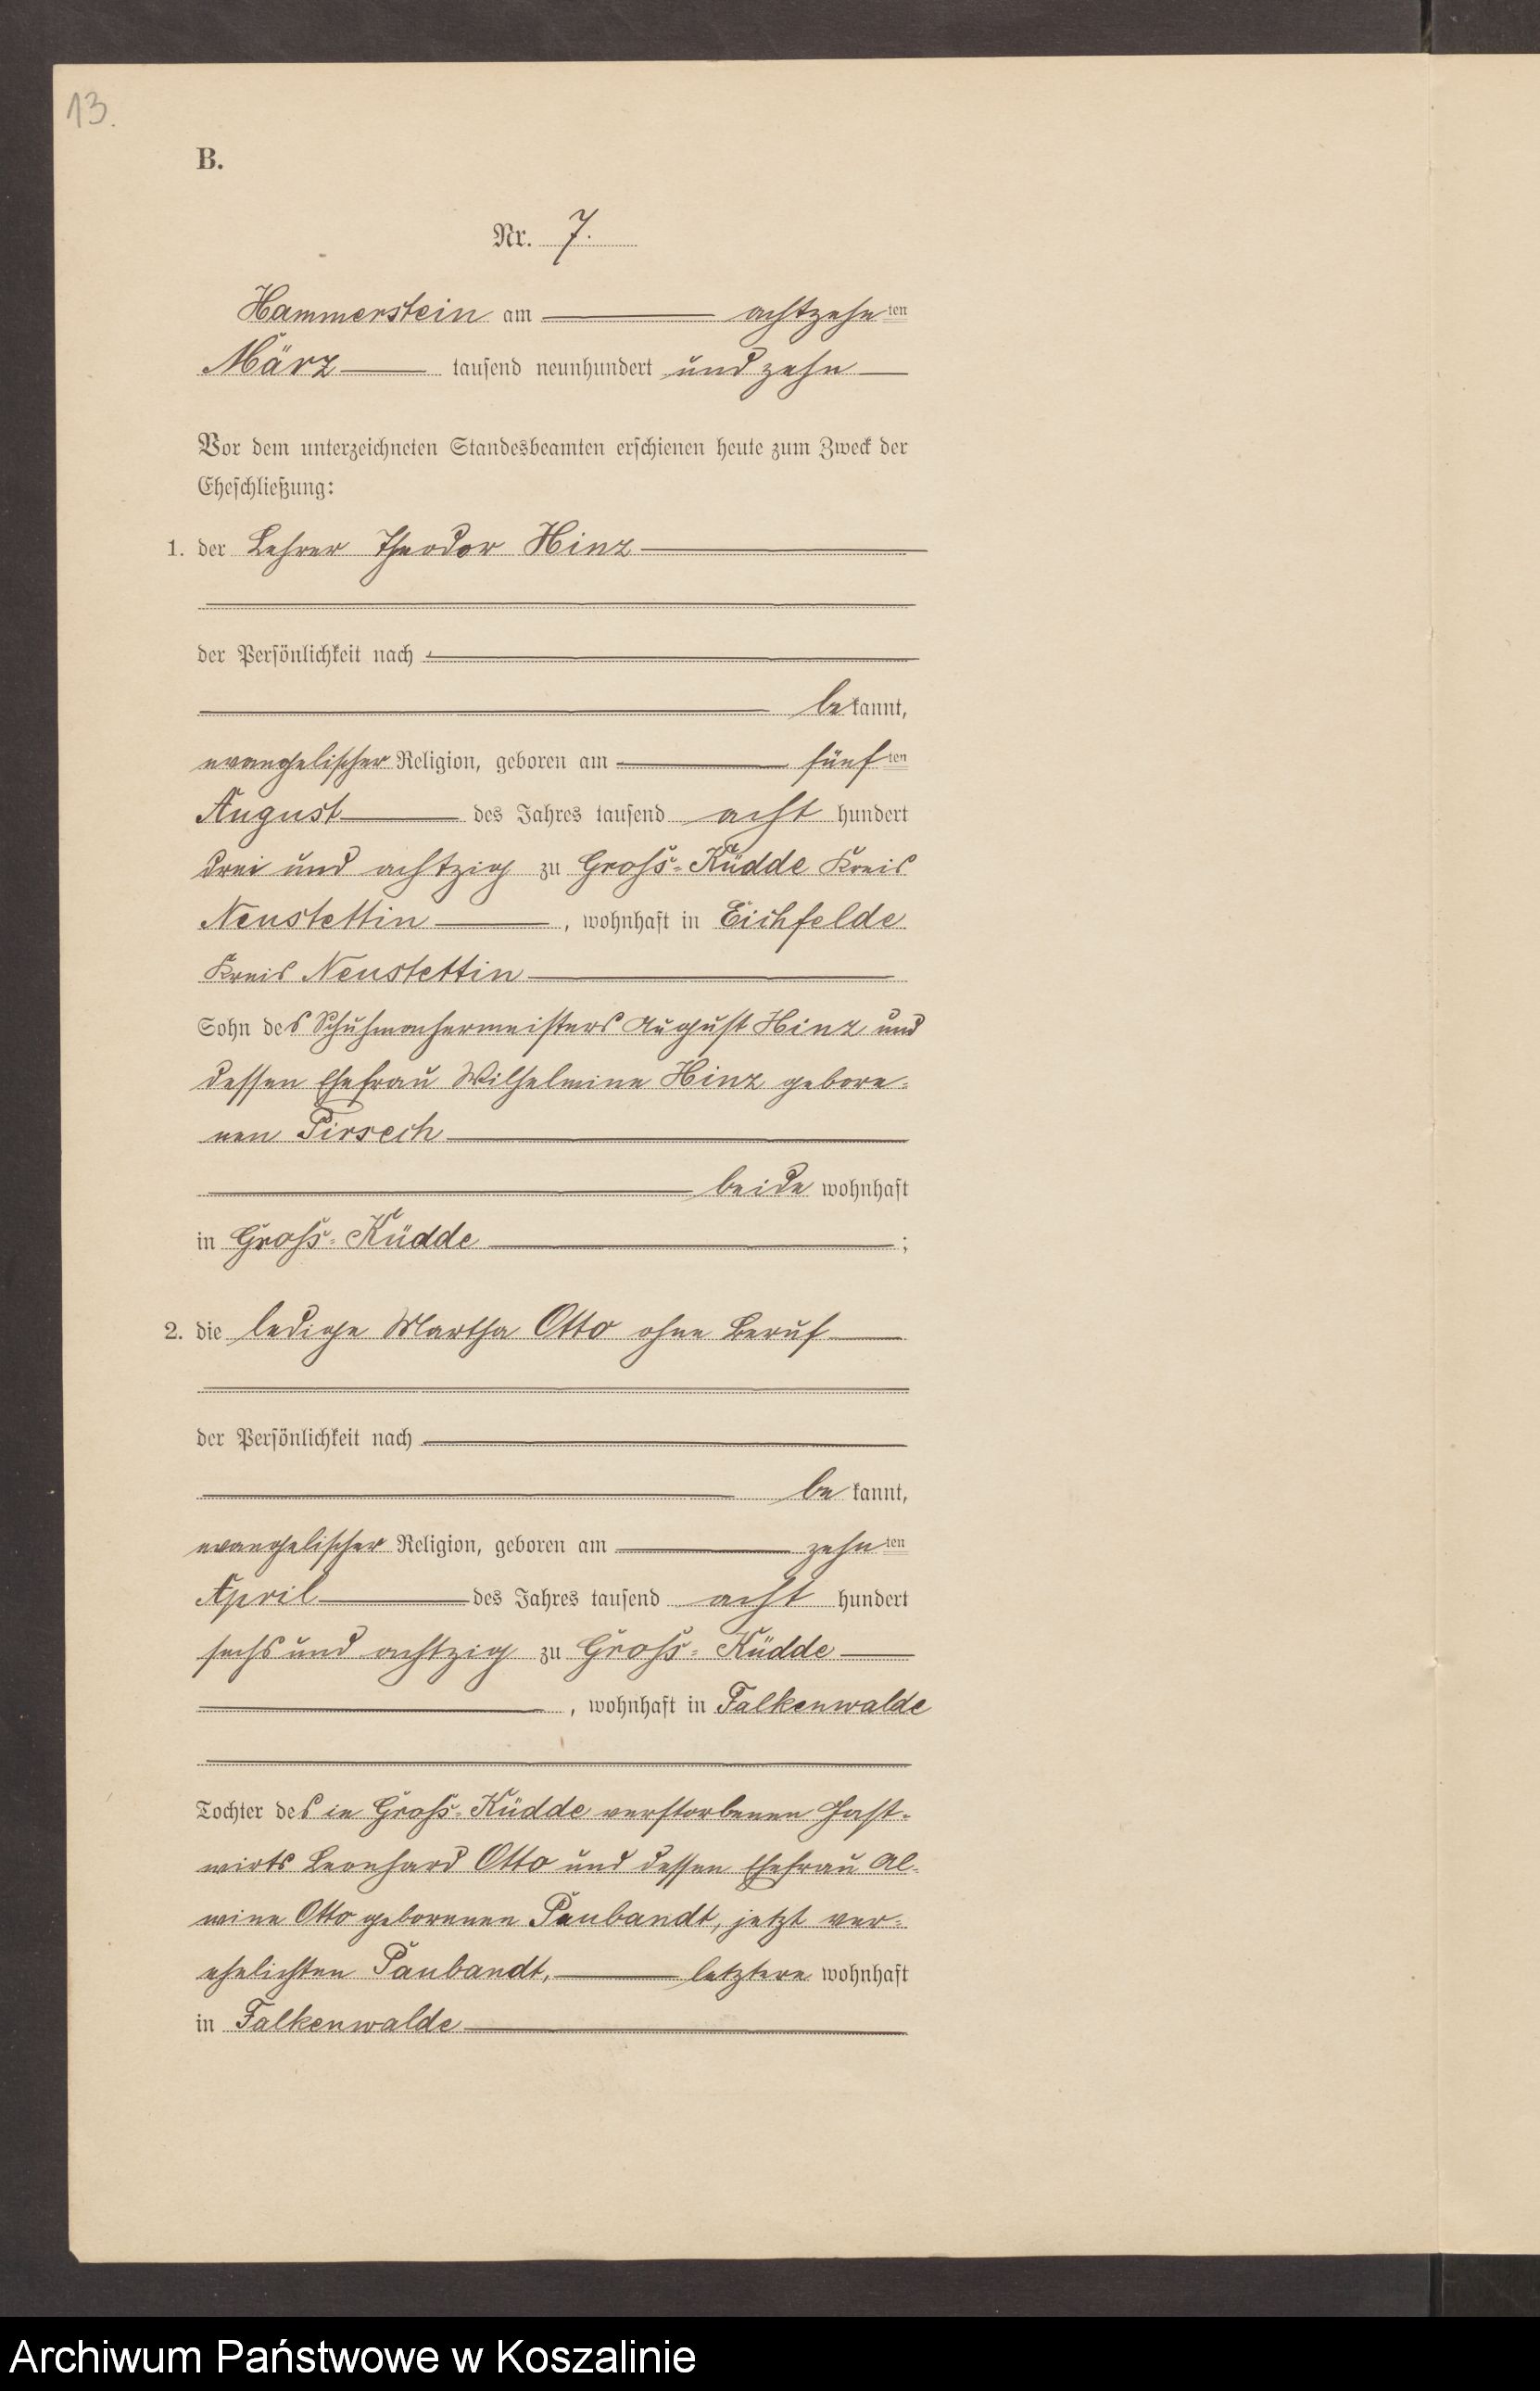 13.
B.
Nr. 7.
Hammerstein am achtzehnten
März tausend neunhundert und zehn
Vor dem unterzeichneten Standesbeamten erschienen heute zum Zweck der
Eheschließung:
1. der Lehrer Theodor Hinz
der Persönlichkeit nach
bekannt,
evangelischer Religion, geboren am fünften
August des Jahres tausend acht hundert
drei und achtzig zu Groß-Küdde Kreis
Neustettin, wohnhaft in Eichfelde
Kreis Neustettin
Sohn des Schuhmachermeisters August Hinz und
dessen Ehefrau Wilhelmine Hinz gebore-
nen Pirsech
beide wohnhaft
in Groß-Küdde ;
2. die ledige Martha Otto ohne Beruf
der Persönlichkeit nach
bekannt,
evangelischer Religion, geboren am zehnten
April des Jahres tausend acht hundert
sechs und achtzig zu Groß-Küdde
, wohnhaft in Falkenwalde
Tochter des in Groß-Küdde verstorbenen Gast-
wirts Leonhard Otto und dessen Ehefrau Al-
wine Otto geborenen Paubandt, jetzt ver-
ehelichten Paubandt, letztere wohnhaft
in Falkenwalde
Archiwum Państwowe w Koszalinie